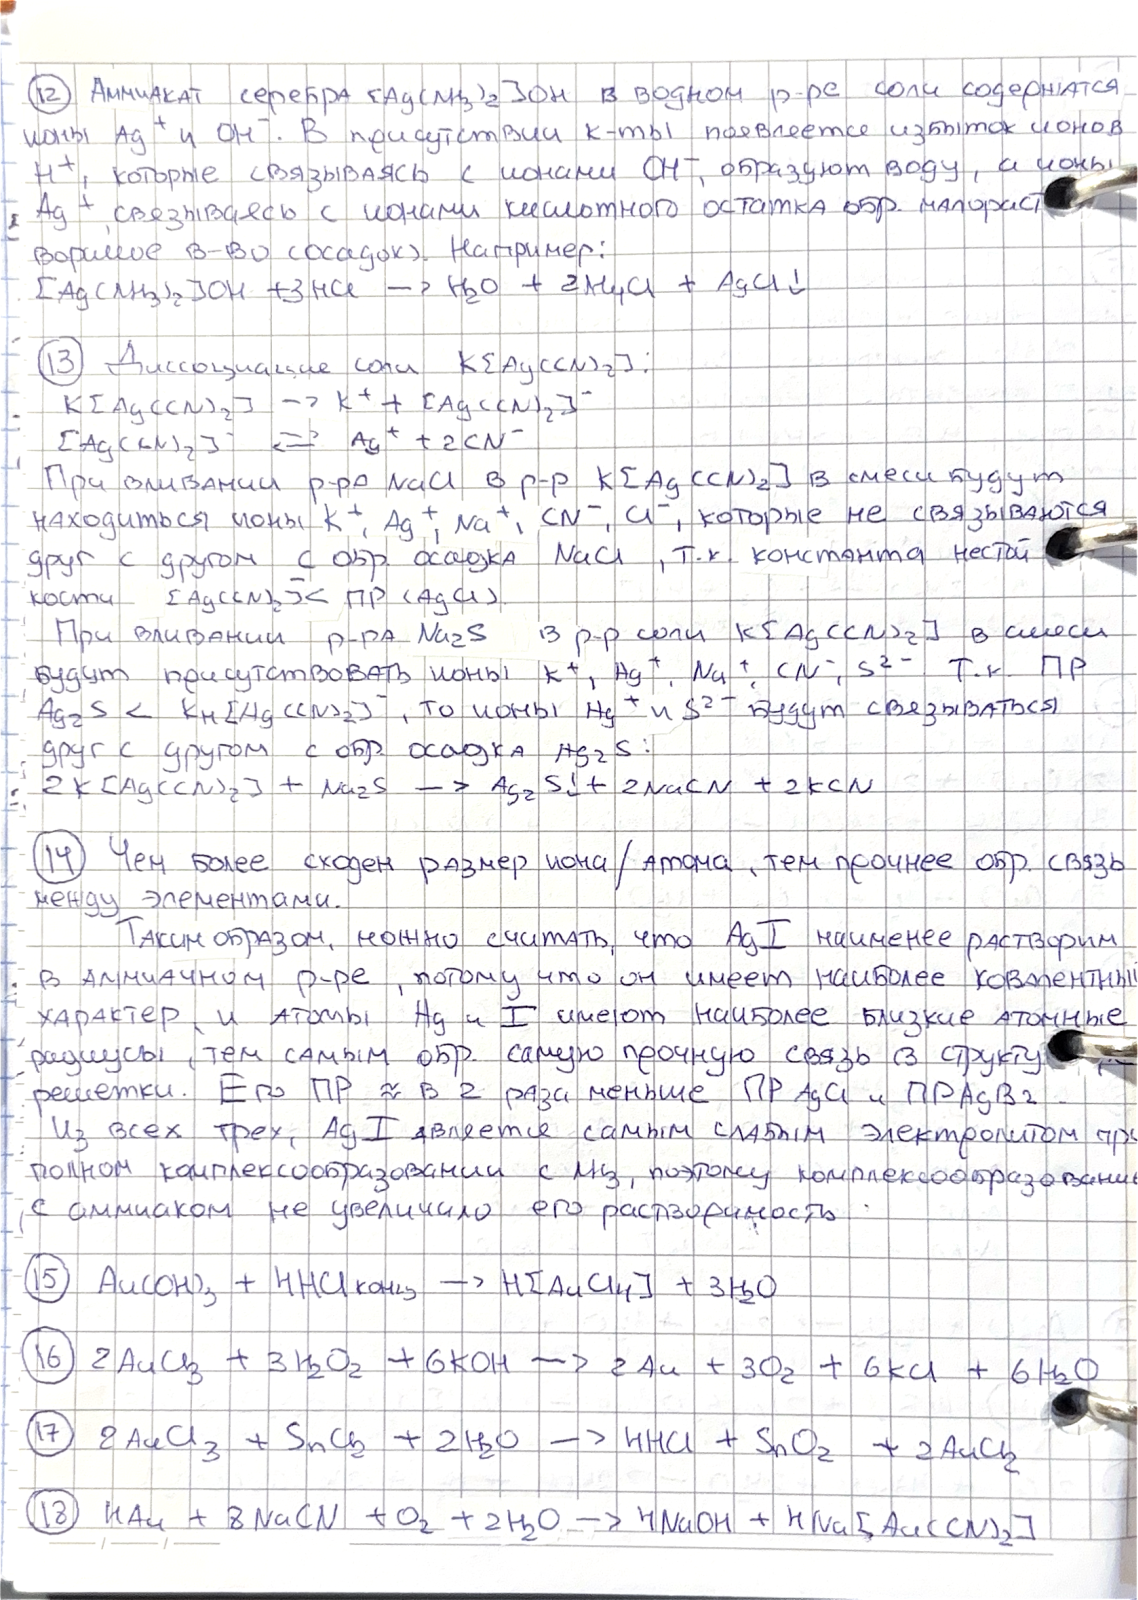 12 Аммиакат серебра [Ag(NH3)2]OH в водном р-ре соли содержатся
ионы Ag⁺ и OH⁻. В присутствии к-ты появляется избыток ионов
H⁺, которые связываясь с ионами OH⁻, образуют воду, а ионы
Ag⁺, связываясь с ионами кислотного остатка обр. малораст
воримое в-во (осадок). Например:
[Ag(NH3)2]OH + 3HCl → H2O + 2NH4Cl + AgCl↓
13 Диссоциация соли K[Ag(CN)2]:
K[Ag(CN)2] → K⁺ + [Ag(CN)2]⁻
[Ag(CN)2]⁻ ⇄ Ag⁺ + 2CN⁻
При вливании р-ра NaCl в р-р K[Ag(CN)2] в смеси будут
находиться ионы K⁺, Ag⁺, Na⁺, CN⁻, Cl⁻, которые не связываются
друг с другом с обр. осадка NaCl, т.к. константа нестой
кости [Ag(CN)2]⁻ < ПР (AgCl).
При вливании р-ра Na2S в р-р соли K[Ag(CN)2] в смеси
будут присутствовать ионы K⁺, Ag⁺, Na⁺, CN⁻, S²⁻. Т.к. ПР
Ag2S < Kн[Ag(CN)2]⁻, то ионы Ag⁺ и S²⁻ будут связываться
друг с другом с обр. осадка Ag2S:
2K[Ag(CN)2] + Na2S → Ag2S↓ + 2NaCN + 2KCN
14 Чем более сходен размер иона/атома, тем прочнее обр. связь
между элементами.
Таким образом, можно считать, что AgI наименее растворим
в аммиачном р-ре, потому что он имеет наиболее ковалентный
характер, и атомы Ag и I имеют наиболее близкие атомные
радиусы, тем самым обр. самую прочную связь в структу
решетки. Его ПР ≈ в 2 раза меньше ПР AgCl и ПР AgBr.
Из всех трех, AgI является самым слабым электролитом при
полном комплексообразовании с NH3, поэтому комплексообразование
с аммиаком не увеличило его растворимость.
15 Au(OH)3 + 4HCl конц → H[AuCl4] + 3H2O
16 2AuCl3 + 3H2O2 + 6KOH → 2Au + 3O2 + 6KCl + 6H2O
17 2AuCl3 + SnCl2 + 2H2O → 4HCl + SnO2 + 2AuCl2
18 4Au + 8NaCN + O2 + 2H2O → 4NaOH + 4Na[Au(CN)2]